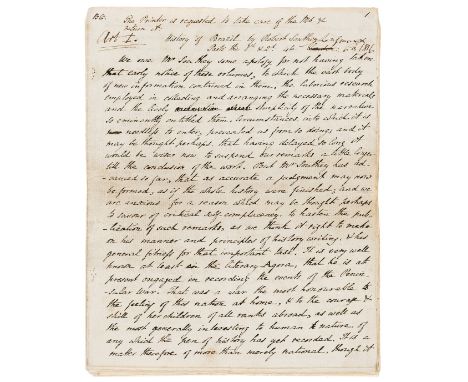 The Printer is requested to take care of the MS. &
return it.
1
Art I. History of Brazil by Robert Southey
Parts the 1st & 2d. 4to
We owe Mr Southey some apology for not having taken
that early notice of these volumes, to which the vast body
of new information contained in them, the laborious research
employed in collecting and arranging the necessary materials
and the lively simplicity of the narrative
so eminently entitled them. Circumstances into which it is
needless to enter, prevented us from so doing; and it
may be thought perhaps, that having delayed so long it
would be wiser now to suspend our remarks a little longer
till the conclusion of the work. But Mr Southey has ad-
vanced so far, that as accurate a judgment may now
be formed, as if the whole history were finished; and we
are anxious for a reason which may be thought perhaps
to savour of critical self-complacency, to hasten the pub-
lication of such remarks, as we think it right to make
on his manner and principles of history writing, & his
general fitness for that important task. It is very well
known at least in the literary Agora, that he is at
present engaged in recording the events of the Penin-
sular War. That was a war the most honourable to
the feeling of this nature at home, & to the courage &
skill of her children of all ranks abroad, as well as
the most generally interesting to human nature, of
any which the pen of history has yet recorded. It is a
matter therefore of more than merely national, though it